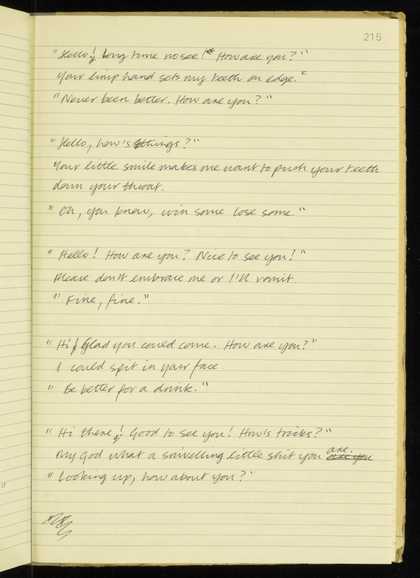 215
"Hello! Long time no see! How are you?"
Your limp hand sets my teeth on edge."
"Never been better. How are you?"
"Hello, how's things?"
Your little smile makes me want to push your teeth
down your throat.
"Oh, you know, win some lose some."
"Hello! How are you? Nice to see you!"
Please don't embrace me or I'll vomit.
"Fine, fine."
"Hi! Glad you could come. How are you?"
I could spit in your face
"Be better for a drink."
"Hi there! Good to see you! How's tricks?"
My God what a snivelling little shit you are.
"Looking up, how about you?"